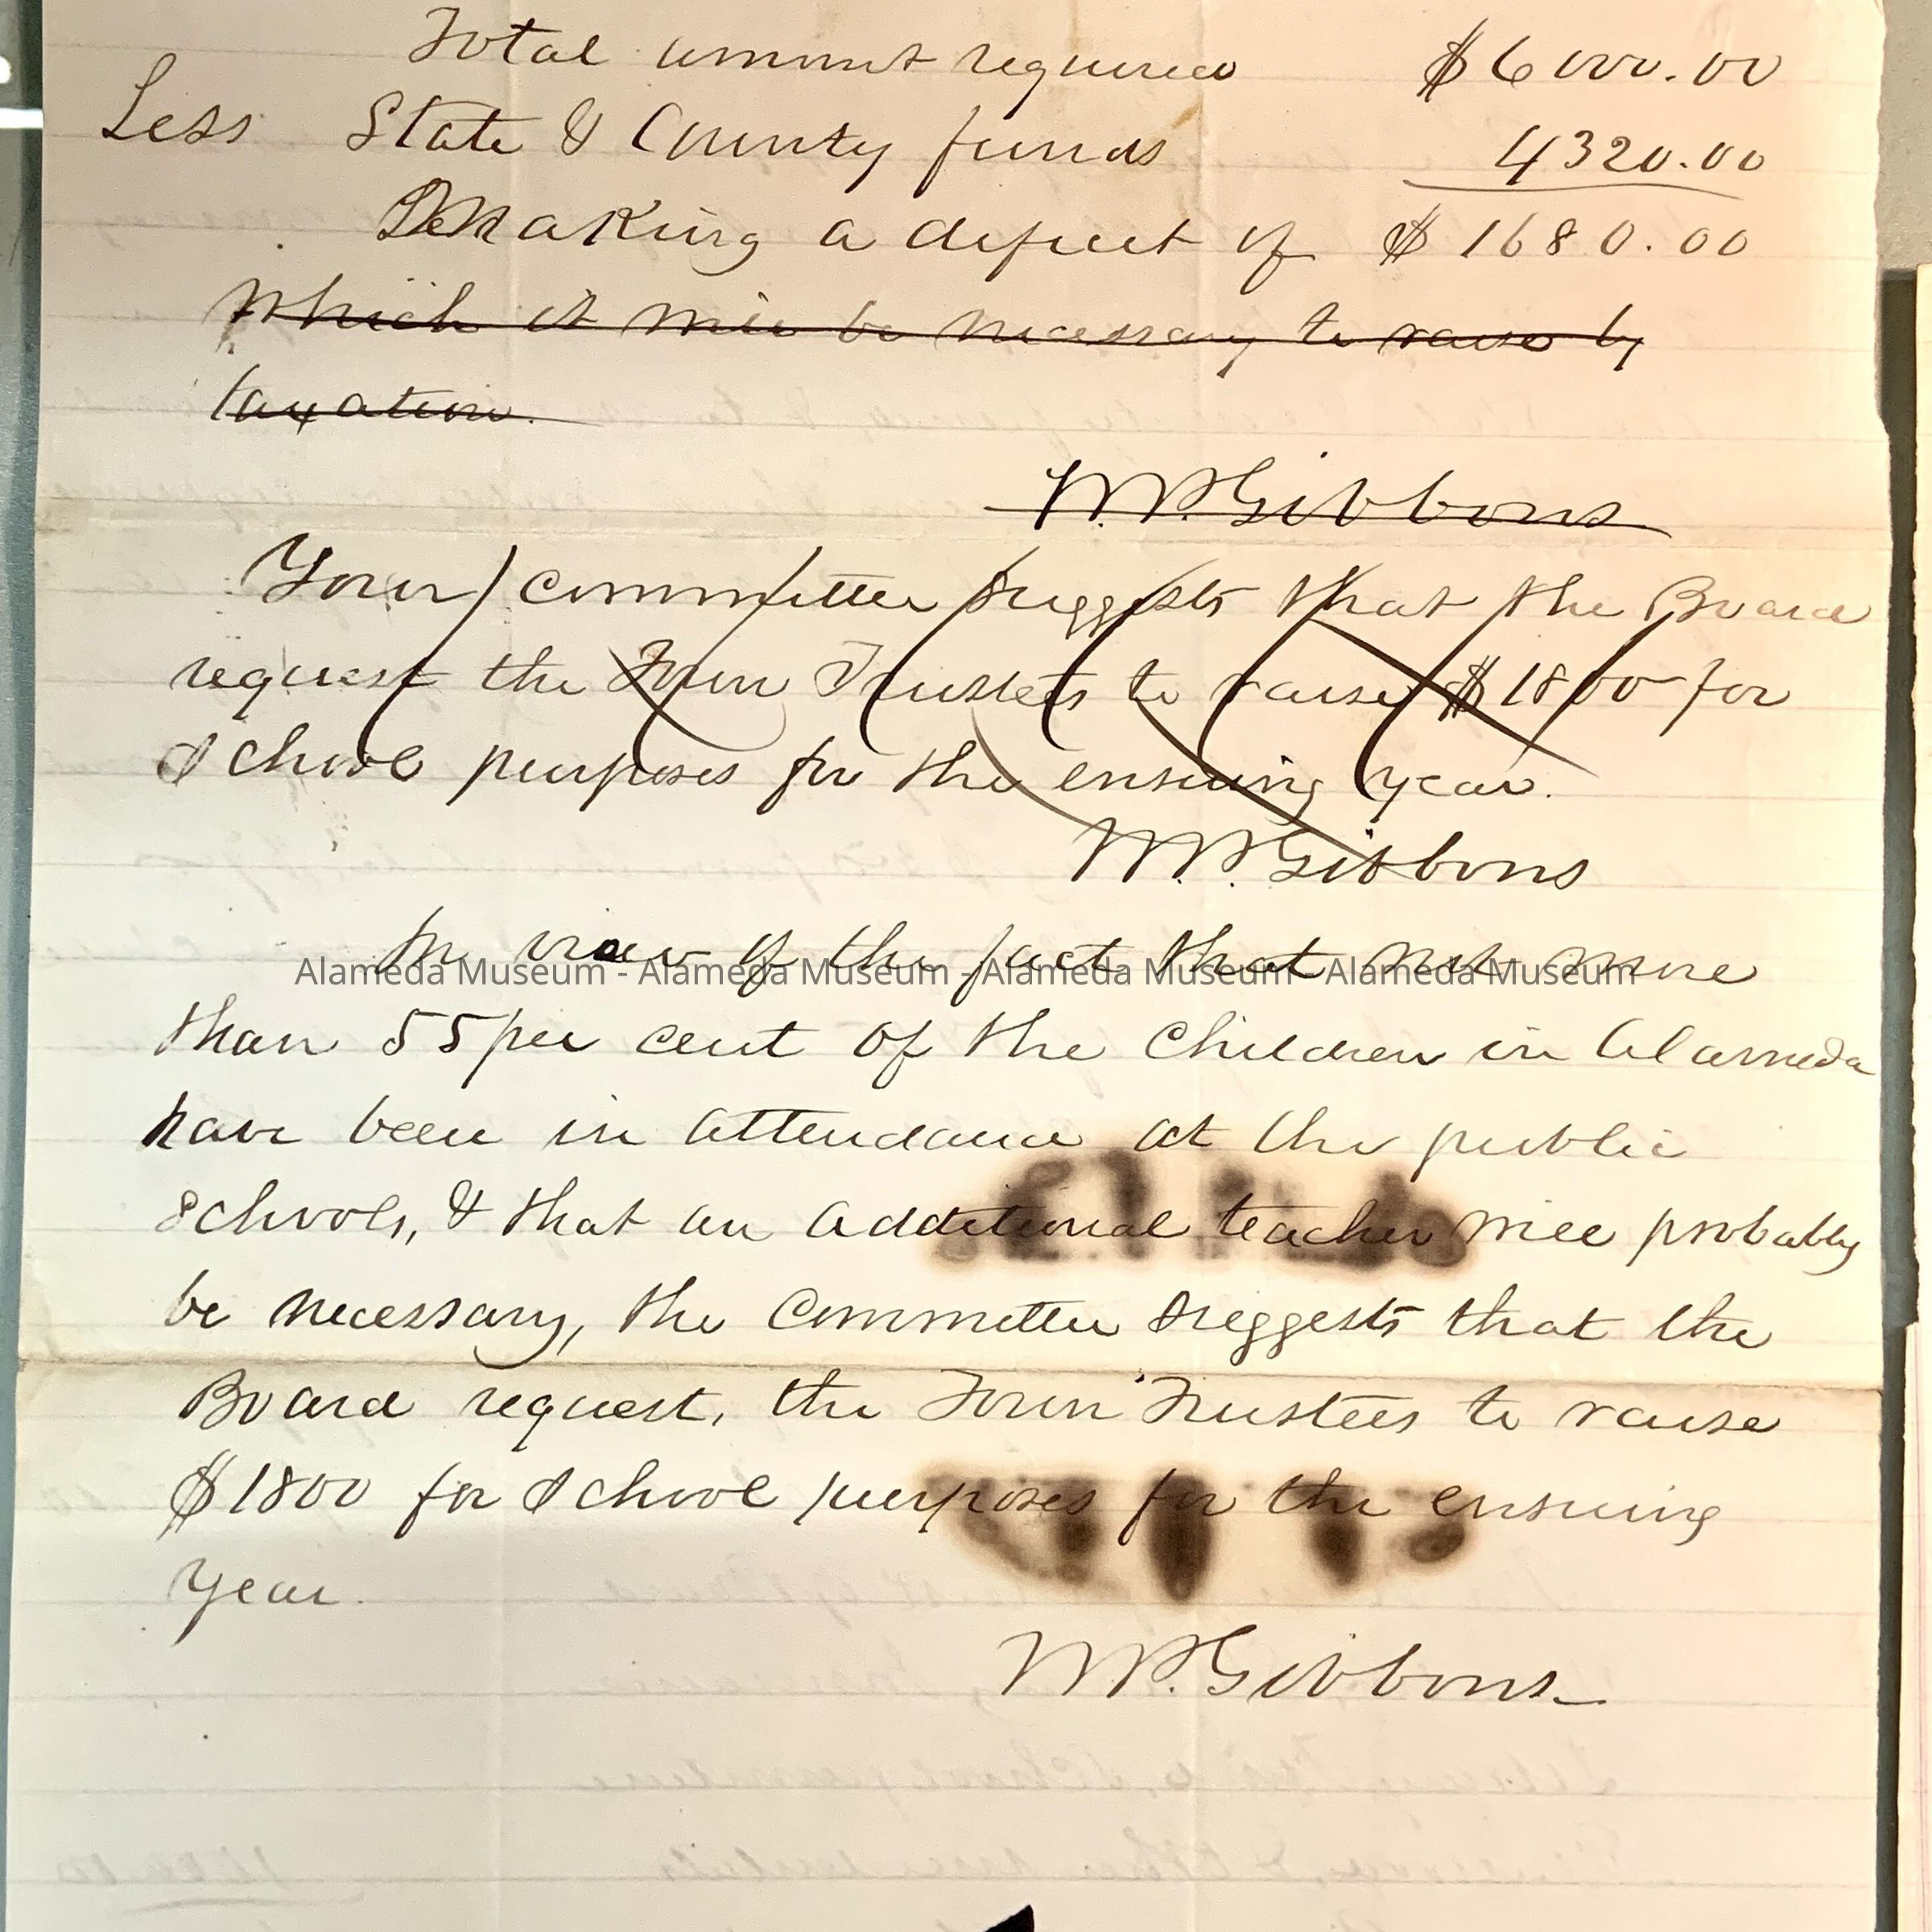 Total amount required $6000.00
Less State & County funds 4320.00
Making a deficit of $1680.00
which it will be necessary to raise by
taxation.
W.P. Gibbons
Your committee suggests that the Board
request the Town Trustees to raise $1800 for
School purposes for the ensuing year.
W.P. Gibbons
In view of the fact that not more
Alameda Museum - Alameda Museum - Alameda Museum - Alameda Museum
than 55 per cent of the Children in Alameda
have been in attendance at the public
schools, & that an additional teacher will probably
be necessary, the Committee suggests that the
Board request, the Town Trustees to raise
$1800 for School purposes for the ensuing
year.
W.P. Gibbons